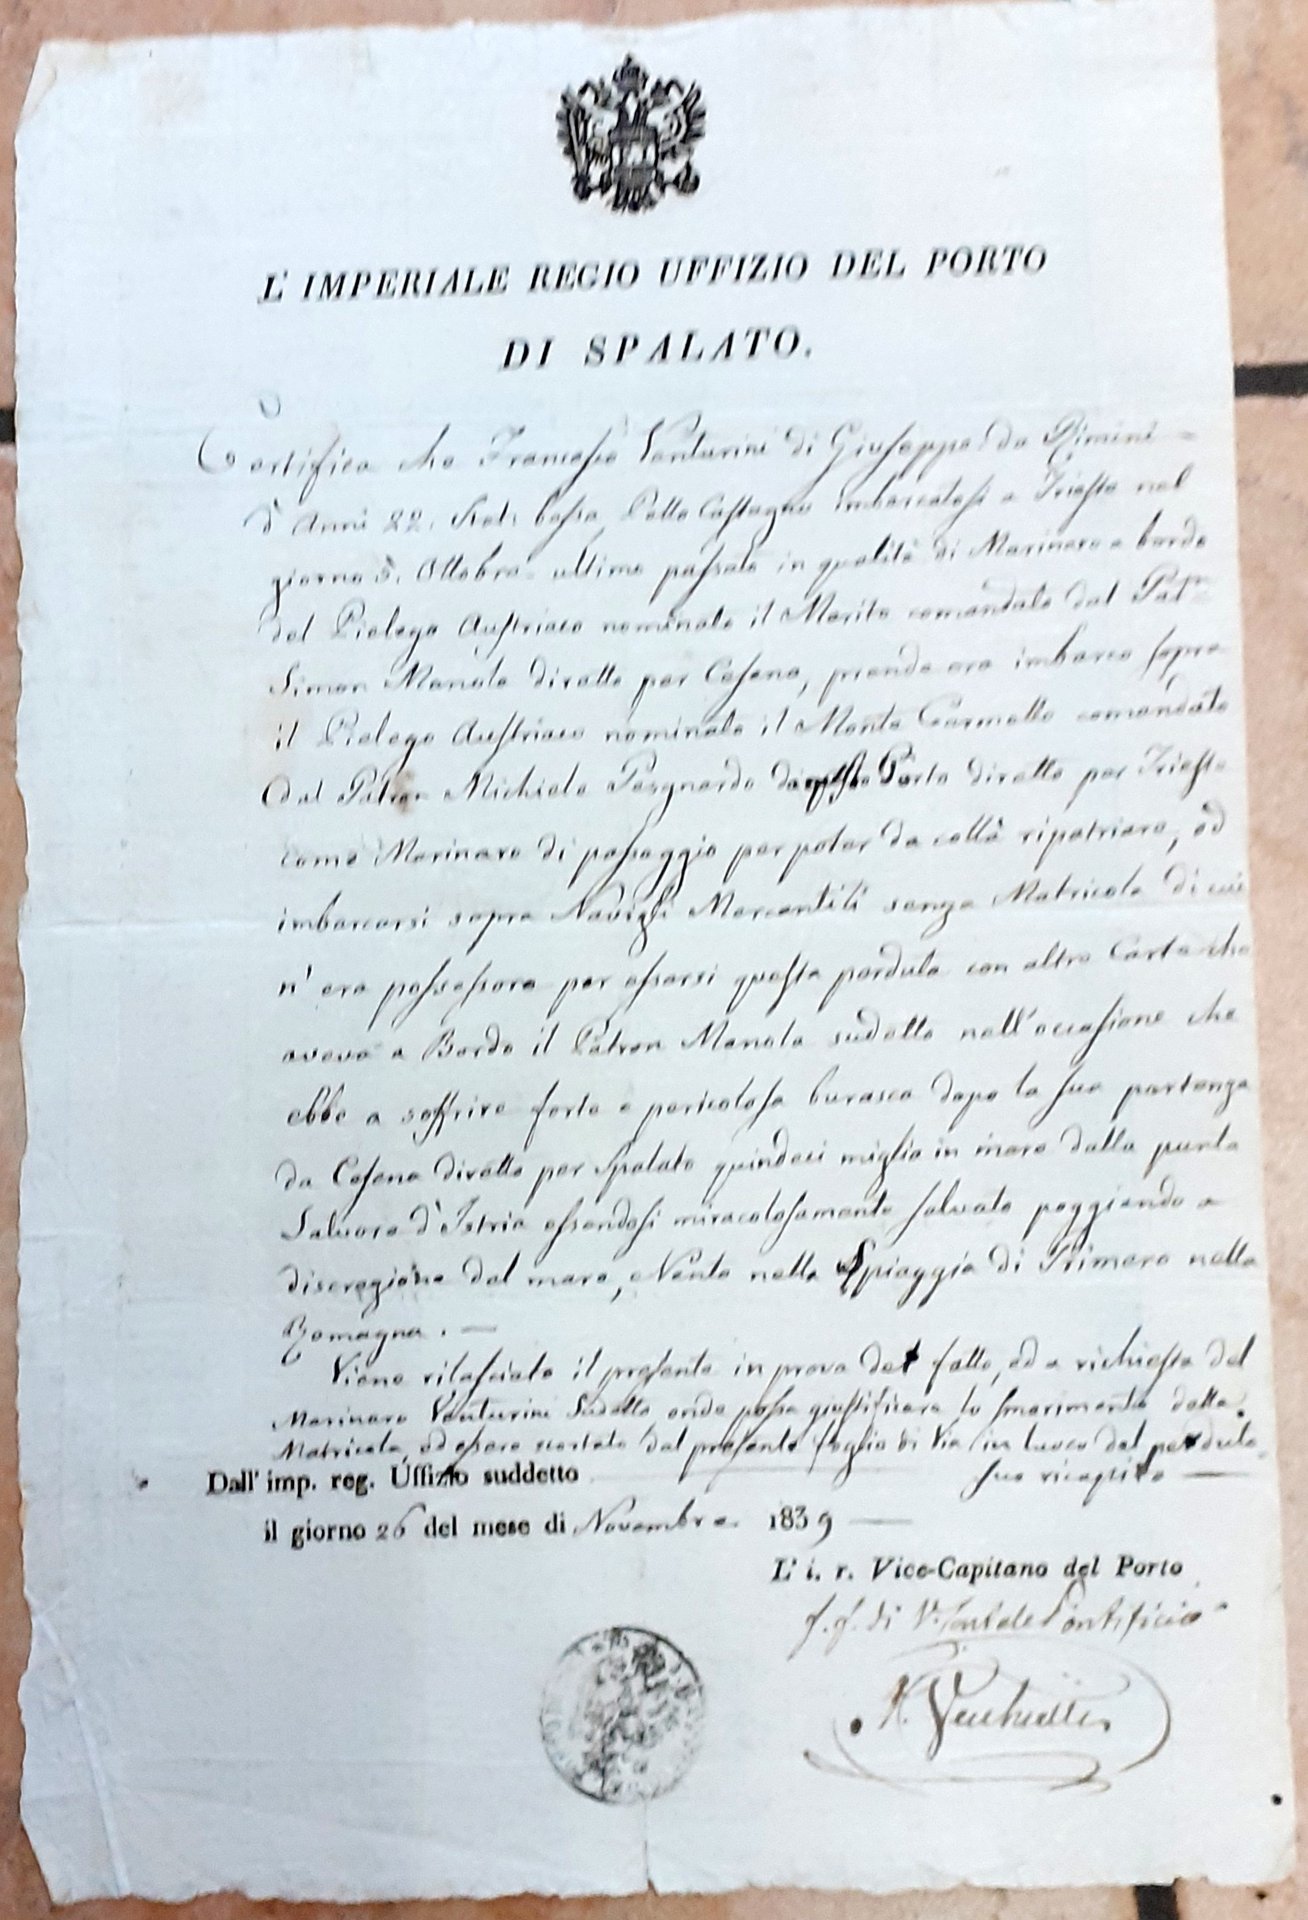 L' IMPERIALE REGIO UFFIZIO DEL PORTO
DI SPALATO.
Certifica che Francesco Venturini di Giuseppe da Rimini
d'Anni 22. Stat: bassa, Pello Castagno imbarcatosi a Trieste nel
giorno 5. Ottobre ultimo passato in qualità di Marinaro a bordo
del Pielego Austriaco nominato il Merito comandato dal Patⁿ
Simon Manola diretto per Cesena, prende ora imbarco sopra
il Pielego Austriaco nominato il Monte Carmello comandato
dal Patron Michiele da questo Porto diretto per Trieste
come Marinaro di passaggio per poter da colà ripatriare, ed
imbarcarsi sopra Navigli Mercantili senza Matricola di cui
n' era possessore per essersi questa perduta con altre Carte che
aveva a Bordo il Patron Manola sudetto nell'occasione che
ebbe a soffrire forte e pericolosa burasca dopo la sua partenza
da Cesena diretto per Spalato quindeci miglia in mare dalla punta
Salvore d'Istria essendosi miracolosamente salvato poggiando a
discregione del mare, e Vento nella Spiaggia di Primaro nella
Romagna. —
Viene rilasciato il presente in prova del fatto, ed a richiesta del
Marinaro Venturini Sudetto onde possa giustificare lo smarimento della
Matricola, ed essere scortato dal presente foglio di Via in luoco del perduto
Dall' imp. reg. Uffizio suddetto suo ricapito —
il giorno 26 del mese di Novembre 1839 —
L' i. r. Vice-Capitano del Porto
f. f. di Pontificio